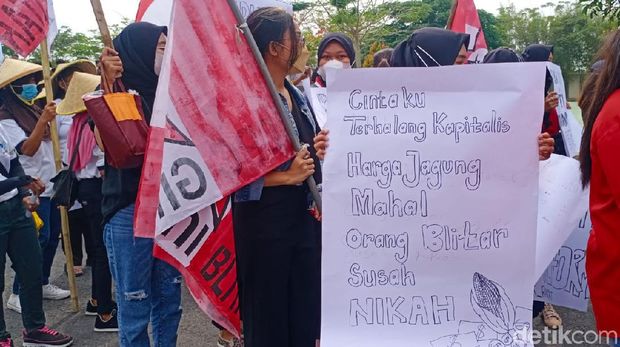 Cintaku
Terhalang Kapitalis
Harga Jagung
Mahal
Orang Blitar
Susah
NIKAH
BLIT
detikcom